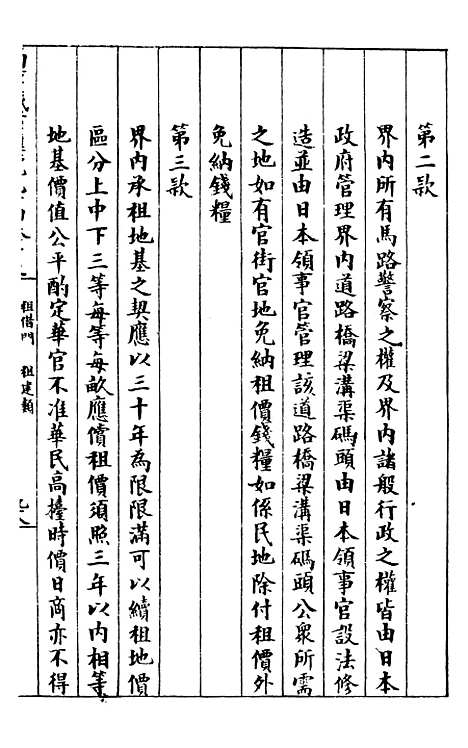 第二款
界内所有馬路警察之權及界内諸般行政之權皆由日本
政府管理界内道路橋梁溝渠碼頭由日本領事官設法修
造並由日本領事官管理該道路橋梁溝渠碼頭公衆所需
之地如有官街官地免納租價錢糧如係民地除付租價外
免納錢糧
第三款
界内承租地基之契應以三十年為限限滿可以續租地價
區分上中下三等每等每畝應償租價須照三年以内相等
地基價值公平酌定華官不准華民高擡時價日商亦不得
租借門　租建類